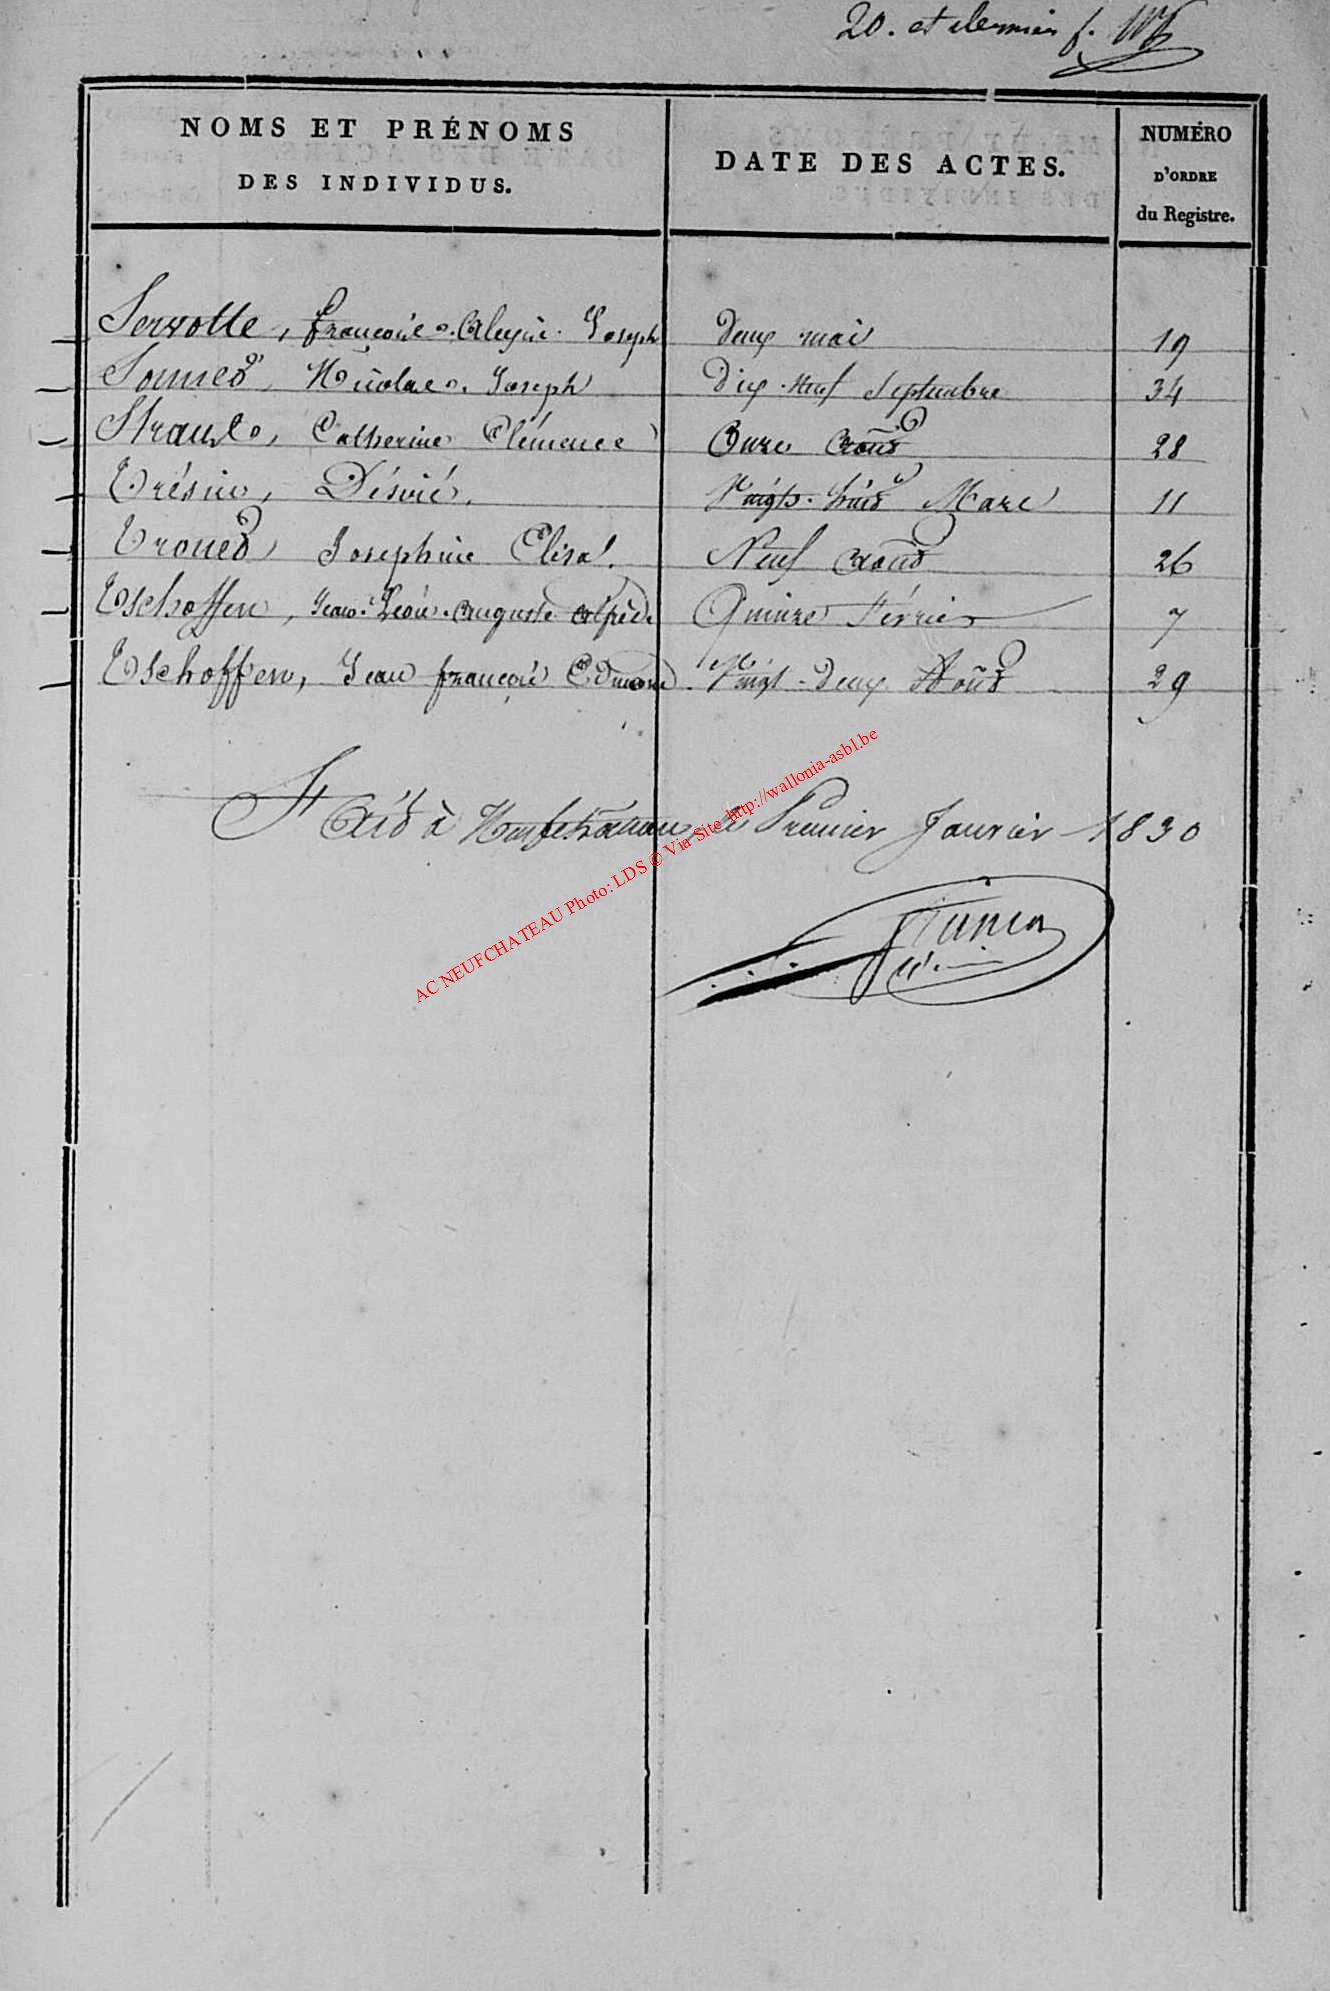 20. et dernier f.
NOMS ET PRÉNOMS
DES INDIVIDUS.
DATE DES ACTES.
NUMÉRO
D'ORDRE
du Registre.
Servotte, François Alexis Joseph deux mai 19
Sonnet, Nicolas Joseph Dix-Neuf Septembre 34
Catherine Clémence Onze Août 28
Trésine, Désiré. Vingt-huit Mars 11
Tronet, Joséphine Elisa. Neuf Août 26
Tschoffen, Jean Léon Auguste Alfred Quinze Février 7
Tschoffen, Jean François Edmond. Vingt-Deux Août 29
Fait à Neufchateau le Premier Janvier 1830
AC NEUFCHATEAU Photo: LDS © Via Site http://wallonia-asbl.be